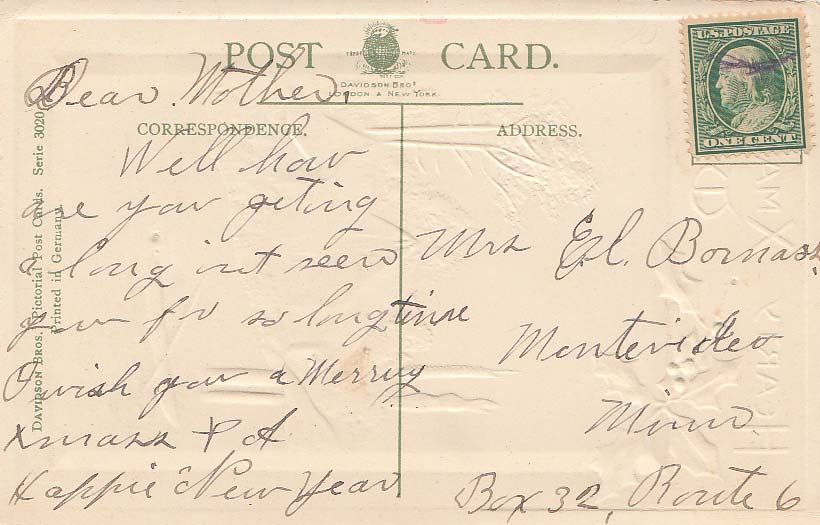 POST CARD.
TRADE MARK
DAVIDSON BROS
LONDON & NEW YORK.
U.S. POSTAGE
ONE CENT
CORRESPONDENCE.
ADDRESS.
DAVIDSON BROS. Pictorial Post Cards. Serie 3020
Printed in Germany.
Dear Mother,
Well how
are you geting
a long int seen
you for so long time
I wish you a Merruy
Xmass & A
Happie New Year
Mrs Ed.
Montevideo
Minn
Box 32, Route 6